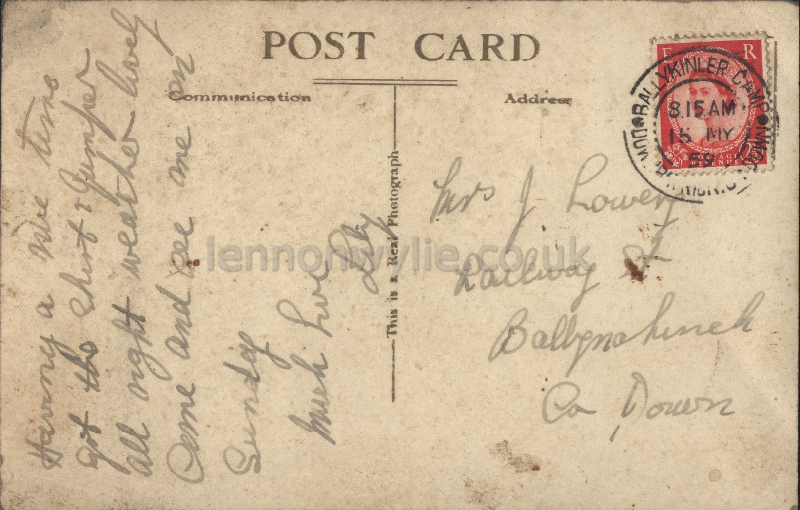 POST CARD
Communication
Address
This is a Real Photograph
E R
BALLYKINLER CAMP
8.15 AM
15 MY
59
DOWNPATRICK
Having a nice time
got the Shirt & Jumper
all right weather lovely
Come and see me on
Sunday
Much Love
Mrs J Lowery
Railway St
Ballynahinch
Co Down
lennonwylie.co.uk